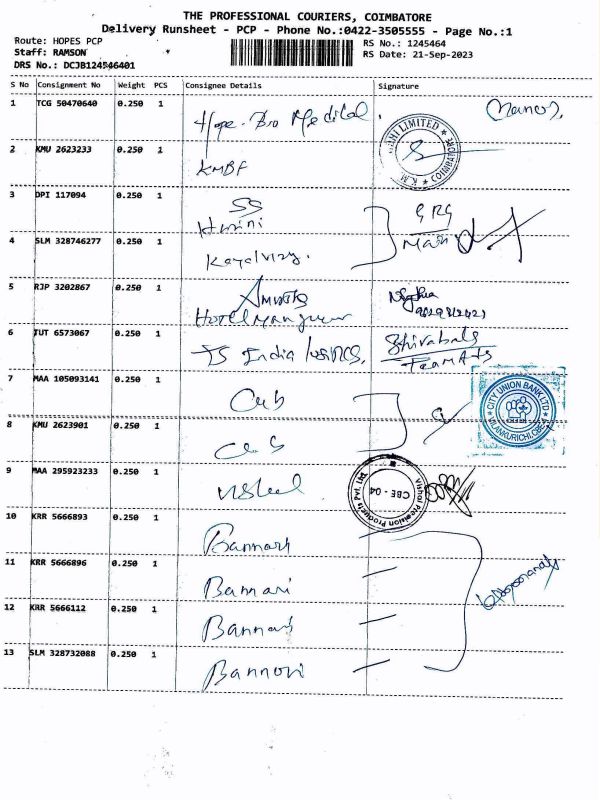 THE PROFESSIONAL COURIERS, COIMBATORE
Delivery Runsheet - PCP - Phone No.:0422-3505555 - Page No.:1
Route: HOPES PCP
RS No.: 1245464
Staff: RAMSON
RS Date: 21-Sep-2023
DRS No.: DCJB124546401
S No Consignment No Weight PCS Consignee Details Signature
1 TCG 50470640 0.250 1 Hope Bio Medical
2 KMU 2623233 0.250 1 KMBF
LIMITED * COIMBATORE * K.M
3 DPI 117094 0.250 1 SS
4 SLM 328746277 0.250 1
5 RJP 3202867 0.250 1
Hotel
6 TUT 6573067 0.250 1 TS India
7 MAA 105093141 0.250 1 Cub
CITY UNION BANK LTD
8 KMU 2623901 0.250 1 Cub
9 MAA 295923233 0.250 1
Vishal Precision Products Pvt. Ltd.
CBE - 04
10 KRR 5666893 0.250 1 Bannari
11 KRR 5666896 0.250 1 Bannari
12 KRR 5666112 0.250 1 Bannari
13 SLM 328732088 0.250 1 Bannari